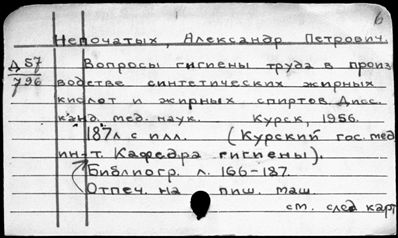 б
Непочатых, Александр Петрович.
Д 57
796
Вопросы гигиены труда в произ
водстве синтетических жирных
кислот и жирных спиртов. Дисс.
канд. мед. наук. Курск, 1956.
187л с илл. (Курский гос. мед
ин-т. Кафедра гигиены).
Библиогр. л. 166-187.
Отпеч. на пиш. маш.
см. след карт